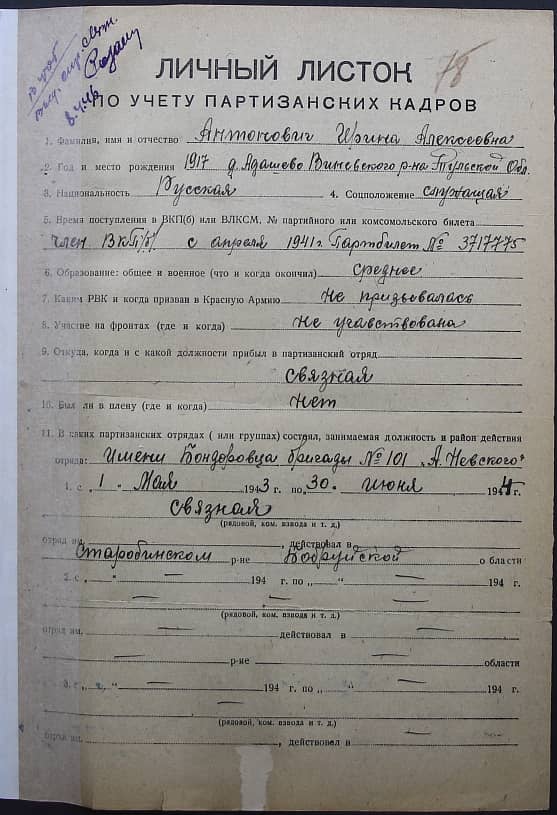 78
8.4.46
ЛИЧНЫЙ ЛИСТОК
ПО УЧЕТУ ПАРТИЗАНСКИХ КАДРОВ
1. Фамилия, имя и отчество Антонович Ирина Алексеевна
2. Год и место рождения 1917 д. Адашево Виневского р-на Тульской Обл.
3. Национальность Русская 4. Соцположение служащая
5. Время поступления в ВКП(б) или ВЛКСМ, № партийного или комсомольского билета
член ВКП/б/ с апреля 1941 г Партбилет № 3717775
6. Образование: общее и военное (что и когда окончил) среднее
7. Каким РВК и когда призван в Красную Армию не призывалась
8. Участие на фронтах (где и когда) не учавствовала
9. Откуда, когда и с какой должности прибыл в партизанский отряд
связная
10. Был ли в плену (где и когда) нет
11. В каких партизанских отрядах (или группах) состоял, занимаемая должность и район действия
отряда: имени Бондоровца бригады № 101 "А. Невского"
1. с „ 1 " Мая 1943 г. по „ 30 " июня 1944 г.
связная
(рядовой, ком. взвода и т. д.)
отряд им. , действовал в
Старобинском р-не Бобруйской области
2. с „ " — 194 г. по „ " — 194 г.
— — —
(рядовой, ком. взвода и т. д.)
отряд им. — действовал в —
— р-не — области
3. с „ " — 194 г. по „ " — 194 г.
— —
(рядовой, ком. взвода и т. д.)
отряд им. — , действовал в —